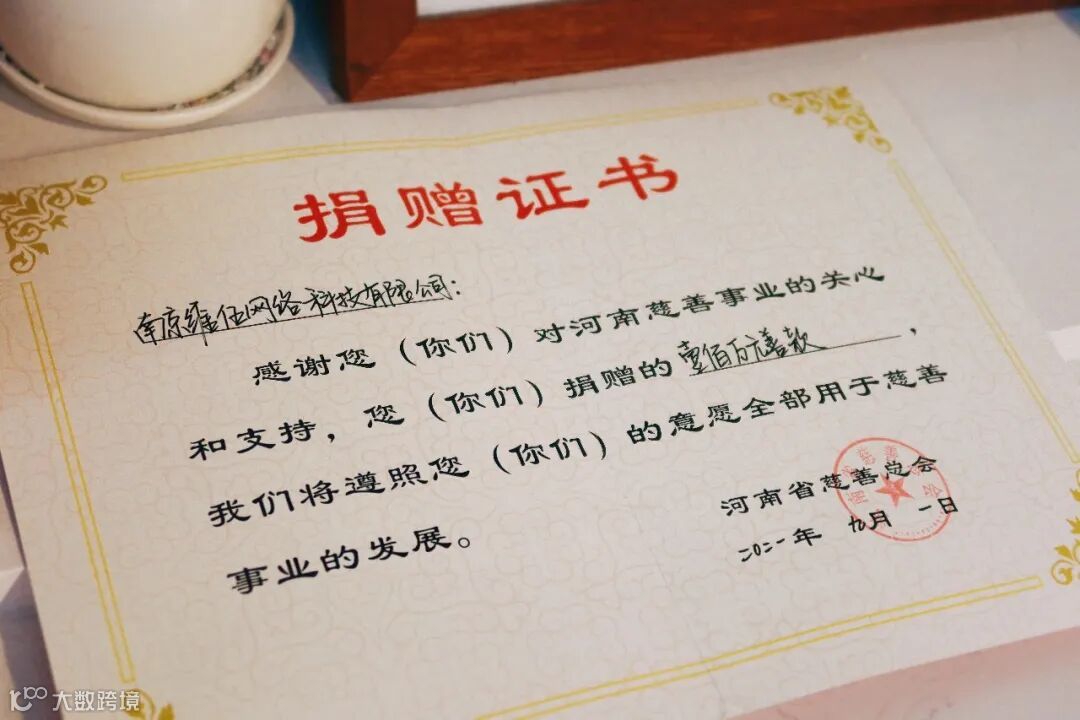 捐赠证书
南京维伍网络科技有限公司：
感谢您（你们）对河南慈善事业的关心
和支持，您（你们）捐赠的壹佰万元善款，
我们将遵照您（你们）的意愿全部用于慈善
事业的发展。
河南省慈善总会
二〇二一年 九月 一日
大数跨境